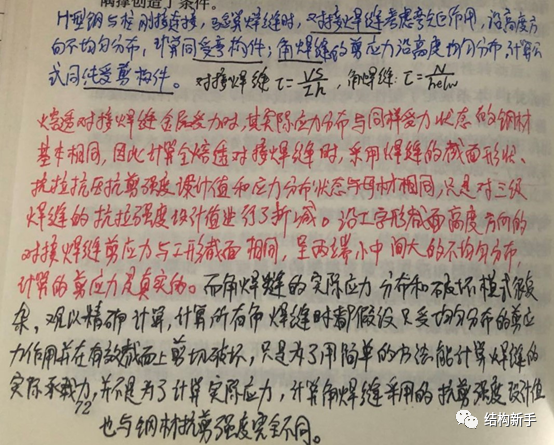 隅撑创造了条件。
H型钢与柱刚接连接,受弯焊缝时,对接焊缝考虑弯矩作用,沿高度方
向不均匀分布,计算同受弯构件;角焊缝的剪应力沿高度均匀分布,计算公
式同纯受剪构件。对接焊缝 τ=VS/Ih ,角焊缝:τ=N/helw
熔透对接焊缝金属受力时,其实际应力分布与同样受力状态的钢材
基本相同,因此计算全熔透对接焊缝时,采用焊缝的截面形状、
抗拉抗压抗剪强度设计值和应力分布状态与母材相同,只是对三级
焊缝的抗拉强度设计值进行了折减。沿工字形截面高度方向的
对接焊缝剪应力与工形截面相同,呈两端小中间大的不均匀分布,
计算的剪应力是真实的。而角焊缝的实际应力分布和破坏模式很复
杂,难以精确计算,计算所有角焊缝时都假设只受均匀分布的剪应
力作用并在有效截面上剪切破坏,只是为了用简单的方法能计算焊缝的
实际承载力,并不是为了计算实际应力,计算角焊缝采用的抗剪强度设计值
72
也与钢材抗剪强度完全不同。
结构新手